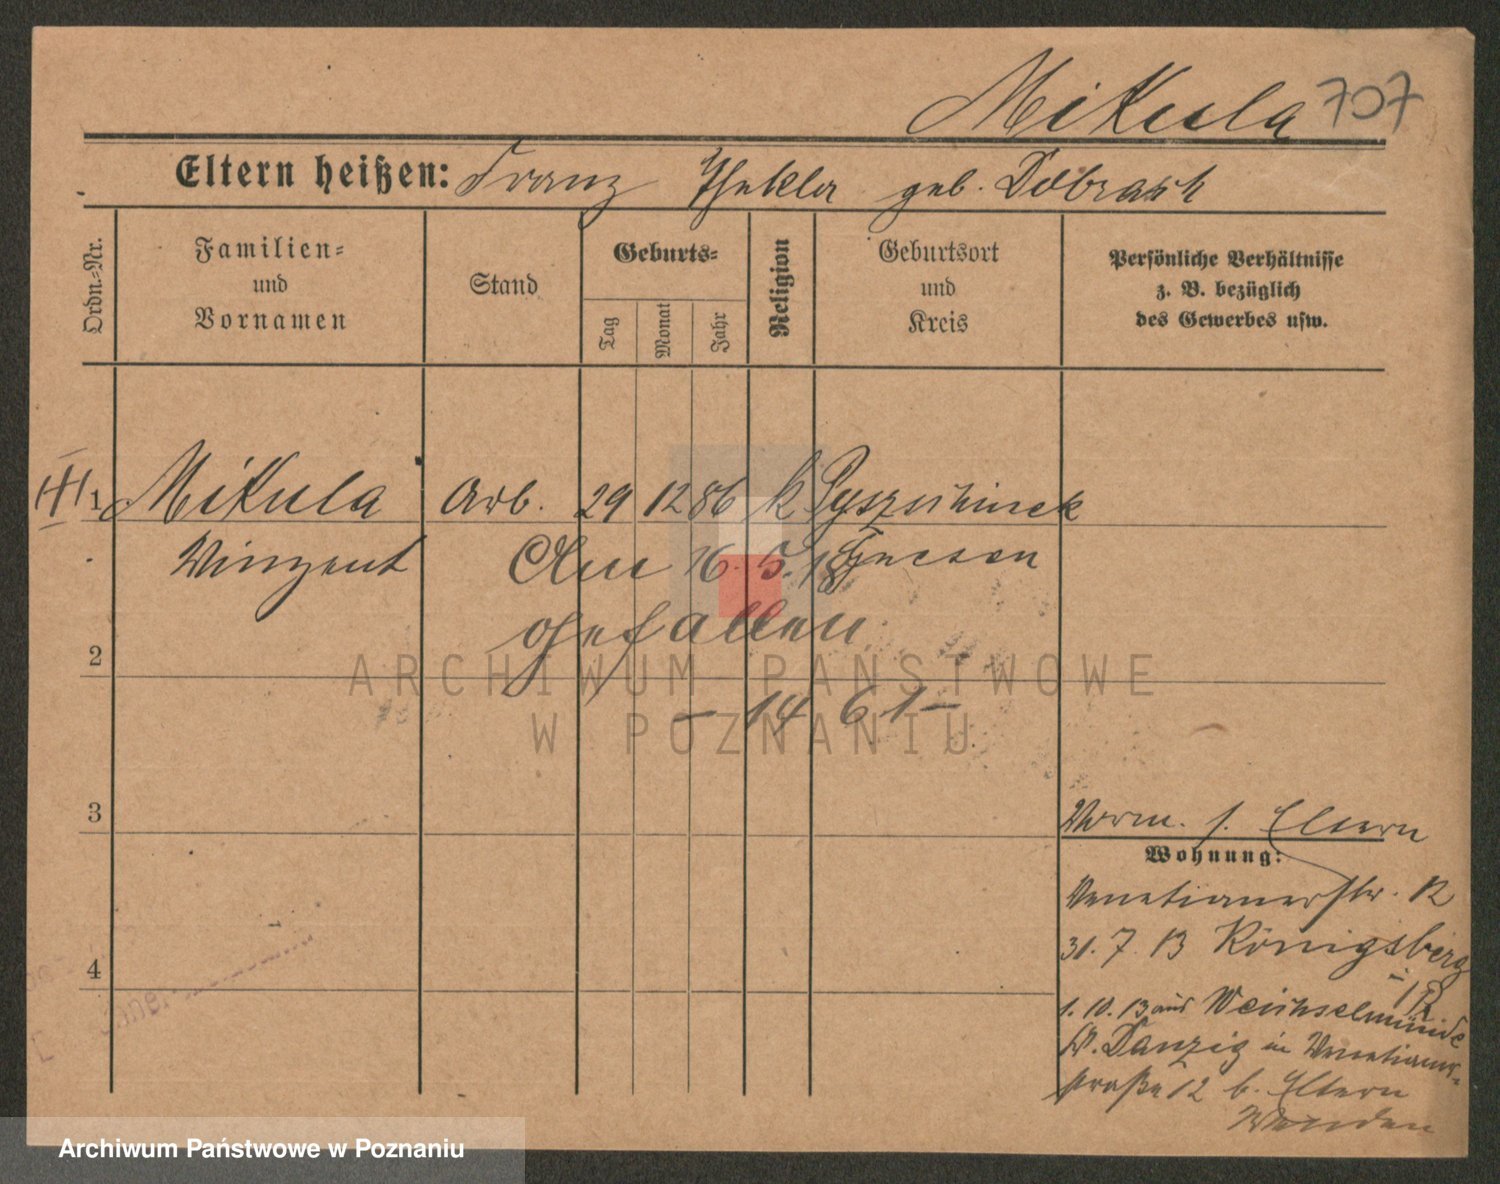 Mikula 707
Eltern heißen: Franz Thekla geb. Dobrash
Ordn.-Nr.
Familien-
und
Vornamen
Stand
Geburts-
Tag
Monat
Jahr
Religion
Geburtsort
und
Kreis
Persönliche Verhältnisse
z. B. bezüglich
des Gewerbes usw.
1 Mikula Arb. 29 12 86 k
Winzent Am 16. 5. 18
gefallen
2
ARCHIWUM PAŃSTWOWE
W POZNANIU
– 14 61 –
3
Verm. s. Eltern
Wohnung:
Venetianerstr. 12
31. 7. 13 Königsberg
4
1. 10. 13 aus Weichselmünde
Danzig in Venetianer-
straße 12 b. Eltern
Archiwum Państwowe w Poznaniu